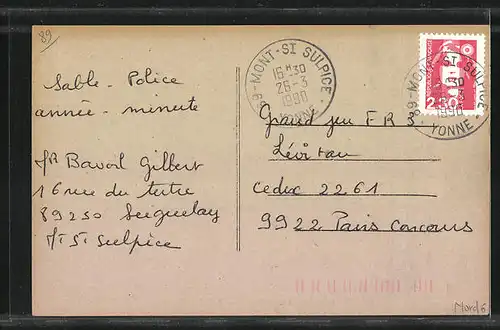 89
Sable - Police
année - minute
Mr Bavoil Gilbert
16 rue du tertre
89250 Seignelay
Mt St Sulpice
89 - MONT-St SULPICE
16H30
26-3
1990
YONNE
89 - MONT-St SULPICE
1990
YONNE
2.30
Grand jeu FR3
Lévitan
Cedex 2261
9922 Paris Concours